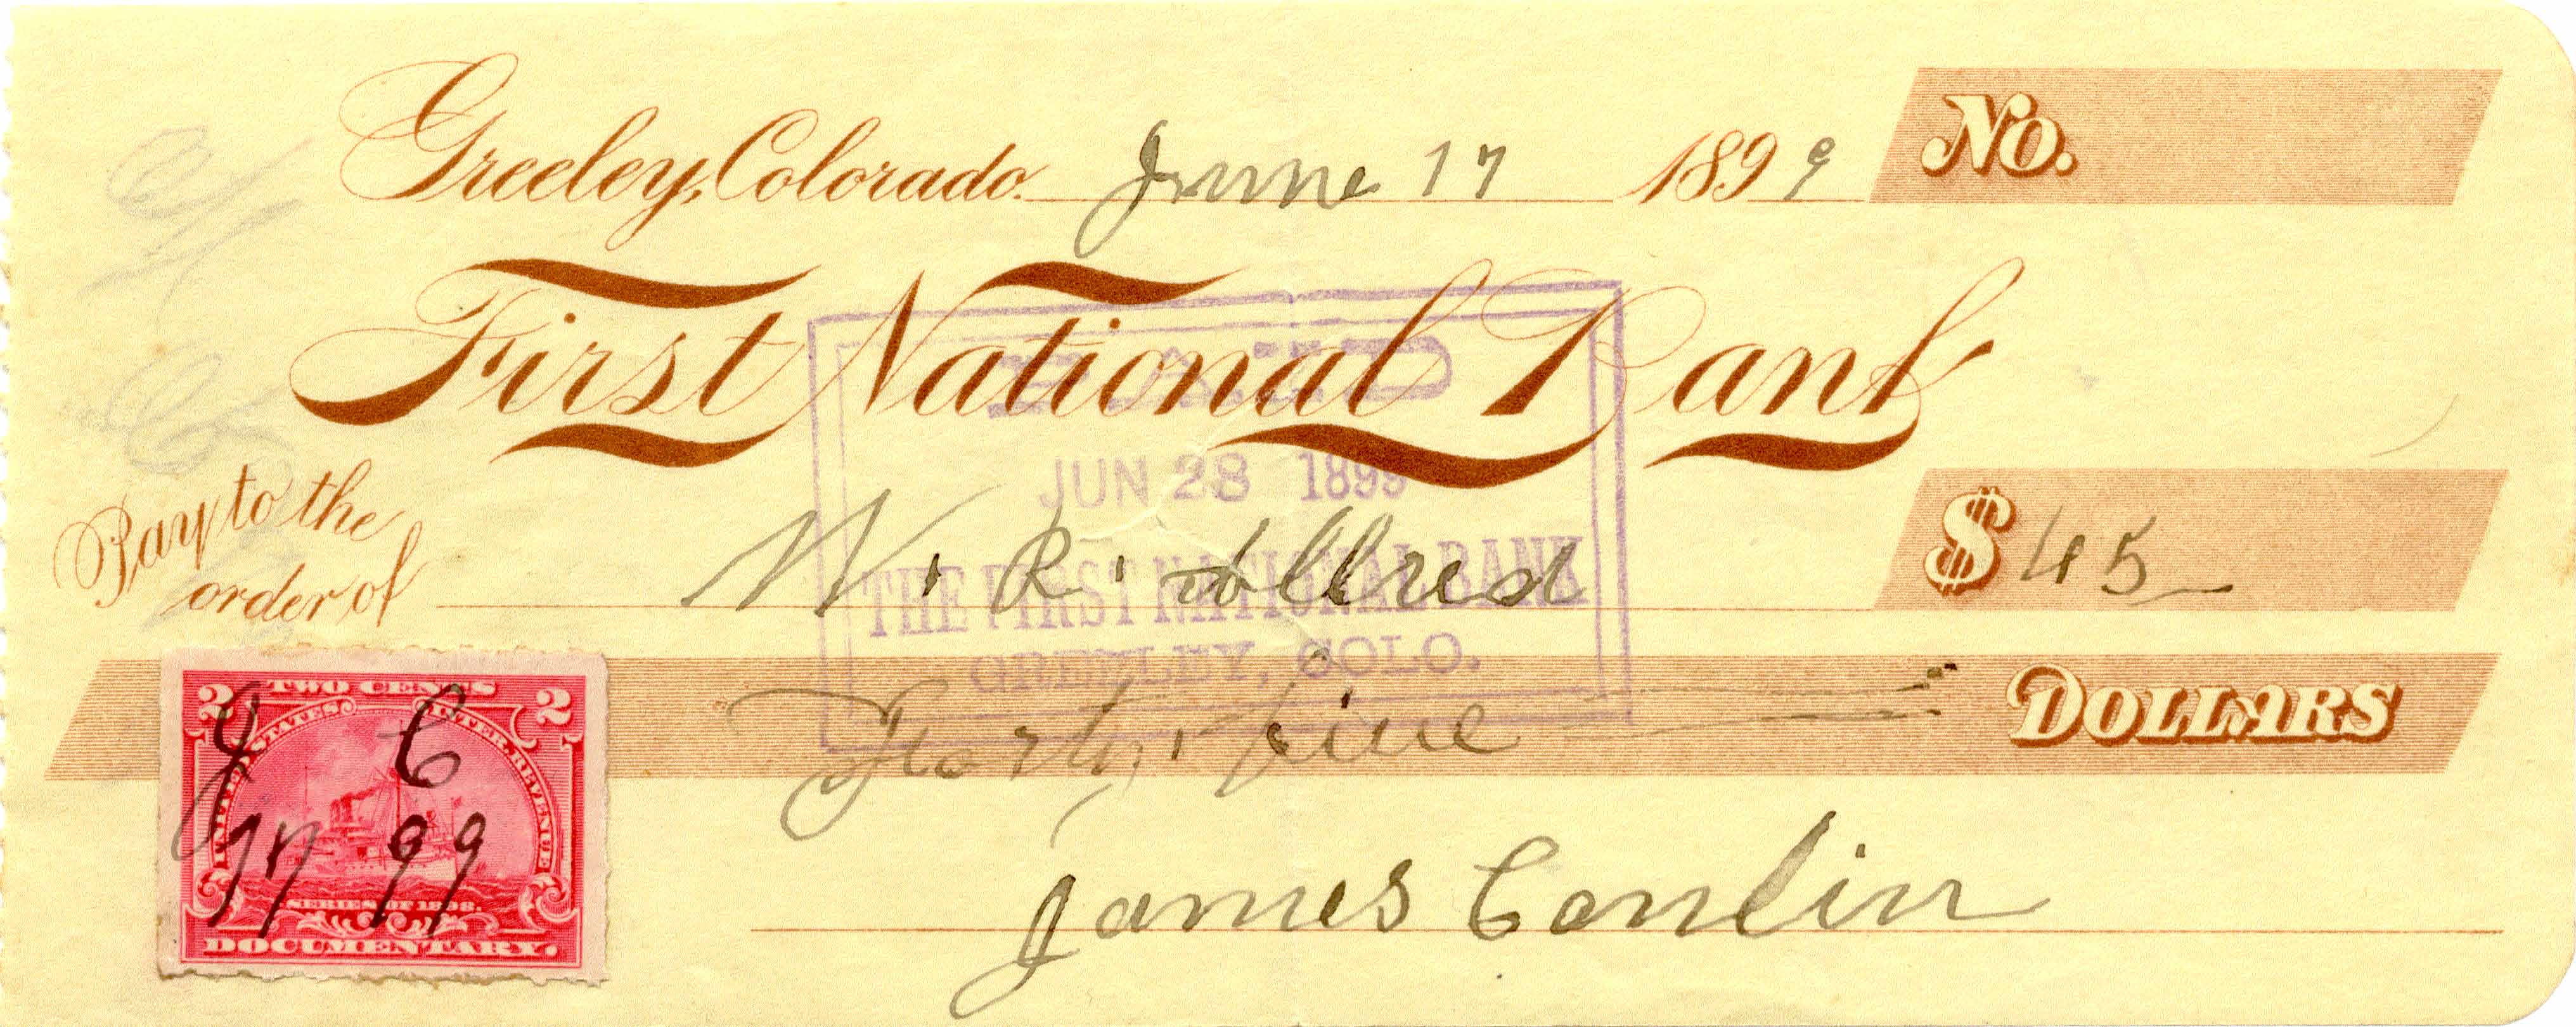 Greeley, Colorado. June 17 1899 No.
First National Bank
PAID
JUN 28 1899
THE FIRST NATIONAL BANK
GREELEY, COLO.
Pay to the order of W. R. Allred $ 45
Forty five DOLLARS
2 TWO CENTS 2
UNITED STATES INTER. REVENUE
J C
17 99
SERIES OF 1898.
DOCUMENTARY.
James Conlin